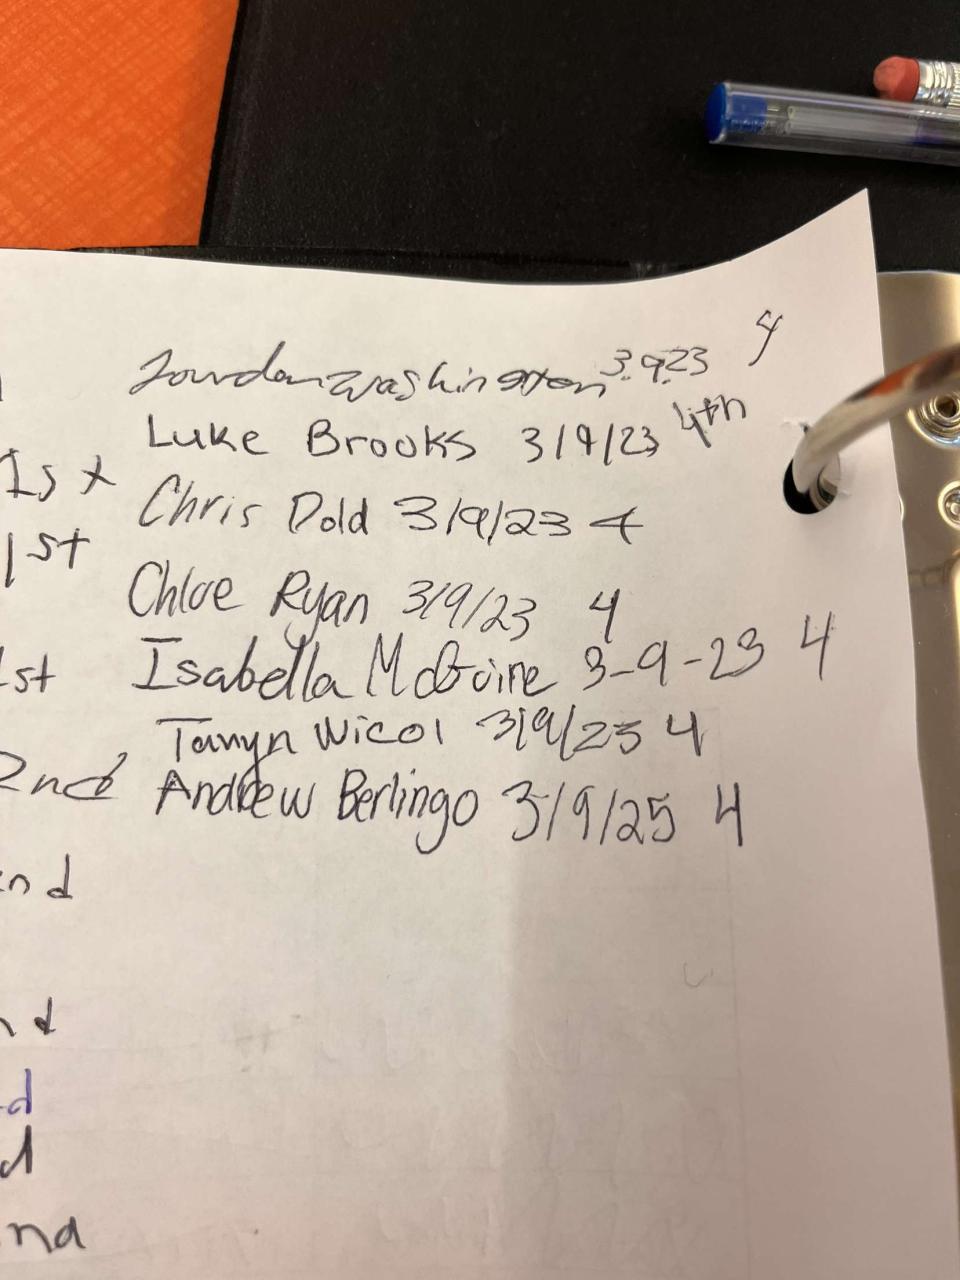 Jourdan Washington 3.9.23 4
Luke Brooks 3/9/23 4th
1st Chris Dold 3/9/23 4
1st
Chloe Ryan 3/9/23 4
1st Isabella McGuire 3-9-23 4
Taryn Nicol 3/9/23 4
2nd Andrew Berlingo 3/9/25 4
nd
nd
d
d
nd